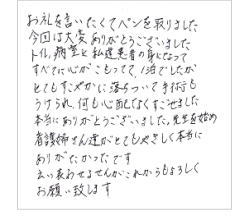 お礼を言いたくてペンを取りました
今回は大変ありがとうございました
トイレ、病室と私達患者の身になって
すべてに心がこもってて、1泊でしたが
とてもすごやかに落ちついて手術も
うけられ、何も心配なくすごせました
本当にありがとうございました。先生を始め
看護婦さん達がとてもやさしく本当に
ありがたかったです
云い表わせませんがこれからもよろしく
お願い致します